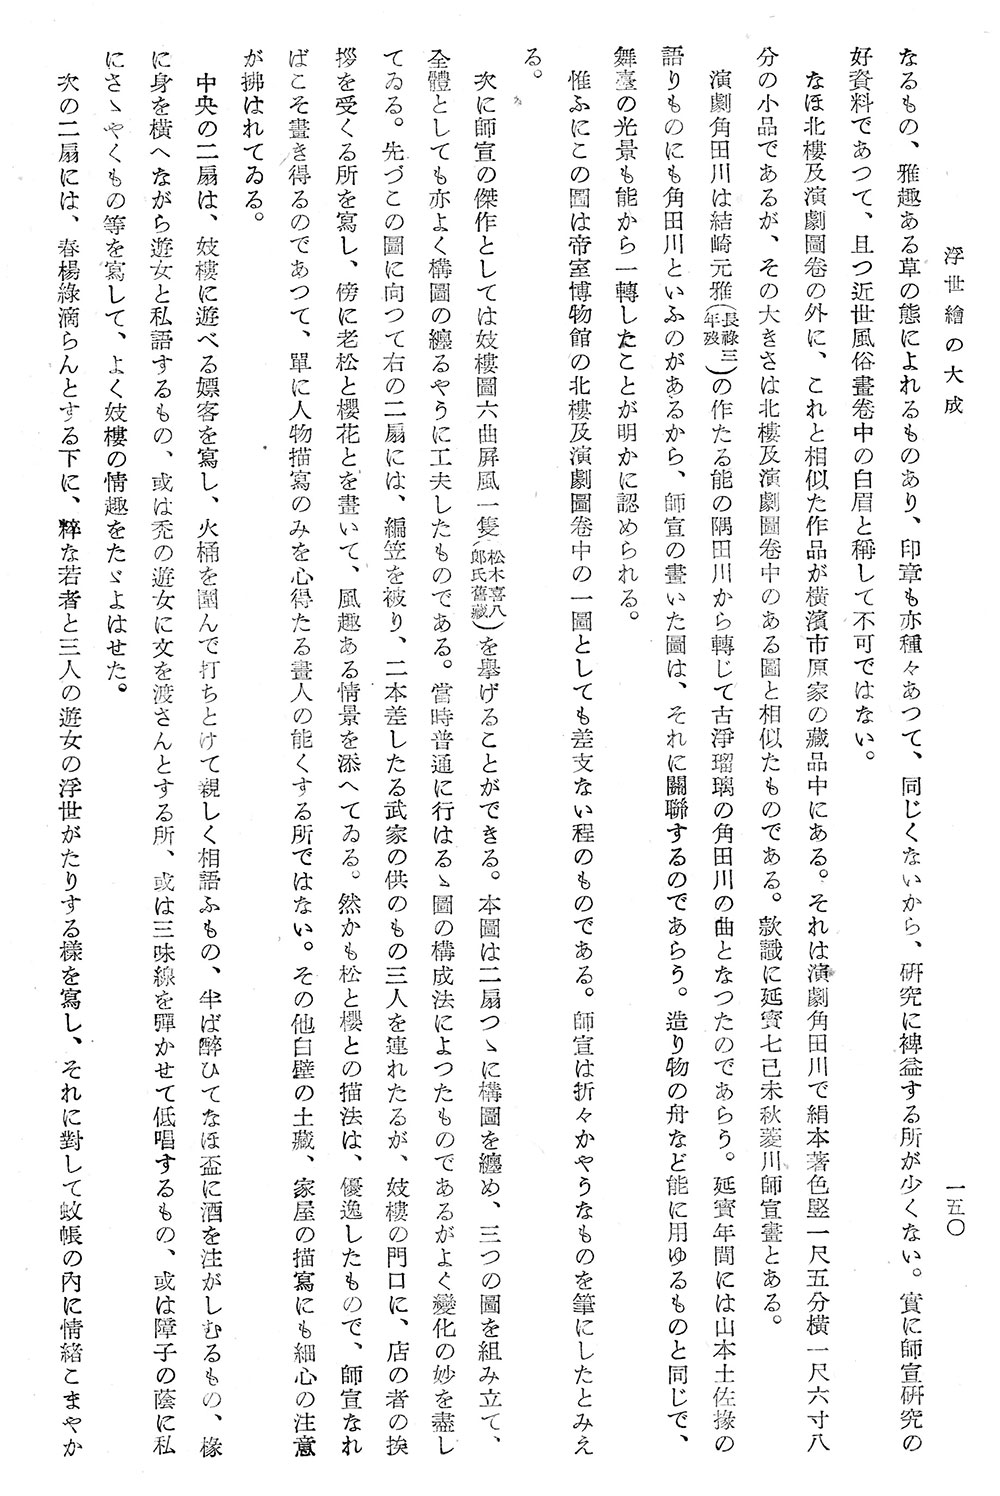 浮世繪の大成
一五〇
なるもの、雅趣ある草の態によれるものあり、印章も亦種々あつて、同じくないから、硏究に裨益する所が少くない。實に師宣硏究の
好資料であつて、且つ近世風俗畫卷中の白眉と稱して不可ではない。
なほ北樓及演劇圖卷の外に、これと相似た作品が横濱市原家の藏品中にある。それは演劇角田川で絹本著色竪一尺五分横一尺六寸八
分の小品であるが、その大きさは北樓及演劇圖卷中のある圖と相似たものである。款識に延寳七己未秋菱川師宣畫とある。
演劇角田川は結崎元雅(長祿三年歿)の作たる能の隅田川から轉じて古淨瑠璃の角田川の曲となつたのであらう。延寳年間には山本土佐掾の
語りものにも角田川といふのがあるから、師宣の畫いた圖は、それに關聯するのであらう。造り物の舟など能に用ゆるものと同じで、
舞臺の光景も能から一轉したことが明かに認められる。
惟ふにこの圖は帝室博物館の北樓及演劇圖卷中の一圖としても差支ない程のものである。師宣は折々かやうなものを筆にしたとみえ
る。
次に師宣の傑作としては妓樓圖六曲屏風一隻(松木喜八郎氏舊藏)を擧げることができる。本圖は二扇つゝに構圖を纏め、三つの圖を組み立て、
全體としても亦よく構圖の纏るやうに工夫したものである。當時普通に行はるゝ圖の構成法によつたものであるがよく變化の妙を盡し
てゐる。先づこの圖に向つて右の二扇には、編笠を被り、二本差したる武家の供のもの三人を連れたるが、妓樓の門口に、店の者の挨
拶を受くる所を寫し、傍に老松と櫻花とを畫いて、風趣ある情景を添へてゐる。然かも松と櫻との描法は、優逸したもので、師宣なれ
ばこそ畫き得るのであつて、單に人物描寫のみを心得たる畫人の能くする所ではない。その他白壁の土藏、家屋の描寫にも細心の注意
が拂はれてゐる。
中央の二扇は、妓樓に遊べる嫖客を寫し、火桶を圍んで打ちとけて親しく相語ふもの、半ば醉ひてなほ盃に酒を注がしむるもの、椽
に身を横へながら遊女と私語するもの、或は禿の遊女に文を渡さんとする所、或は三味線を彈かせて低唱するもの、或は障子の蔭に私
にさゝやくもの等を寫して、よく妓樓の情趣をたゞよはせた。
次の二扇には、春楊綠滴らんとする下に、粹な若者と三人の遊女の浮世がたりする樣を寫し、それに對して蚊帳の內に情緖こまやか